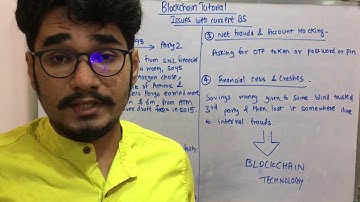 Blockchain Tutorial
Issues with current BS
Party 2
from SNL financial
money, says
organ chase,
of America &
Fargo earned more
$6m, from ATM
over draft fees in 2015.
③ Net frauds & Account Hacking.
Asking for OTP token or password or pin.
④ Financial Crisis & Crashes -
Savings money given to some blind trusted
3rd party & then lost it somewhere due
to internal frauds.
BLOCKCHAIN
TECHNOLOGY